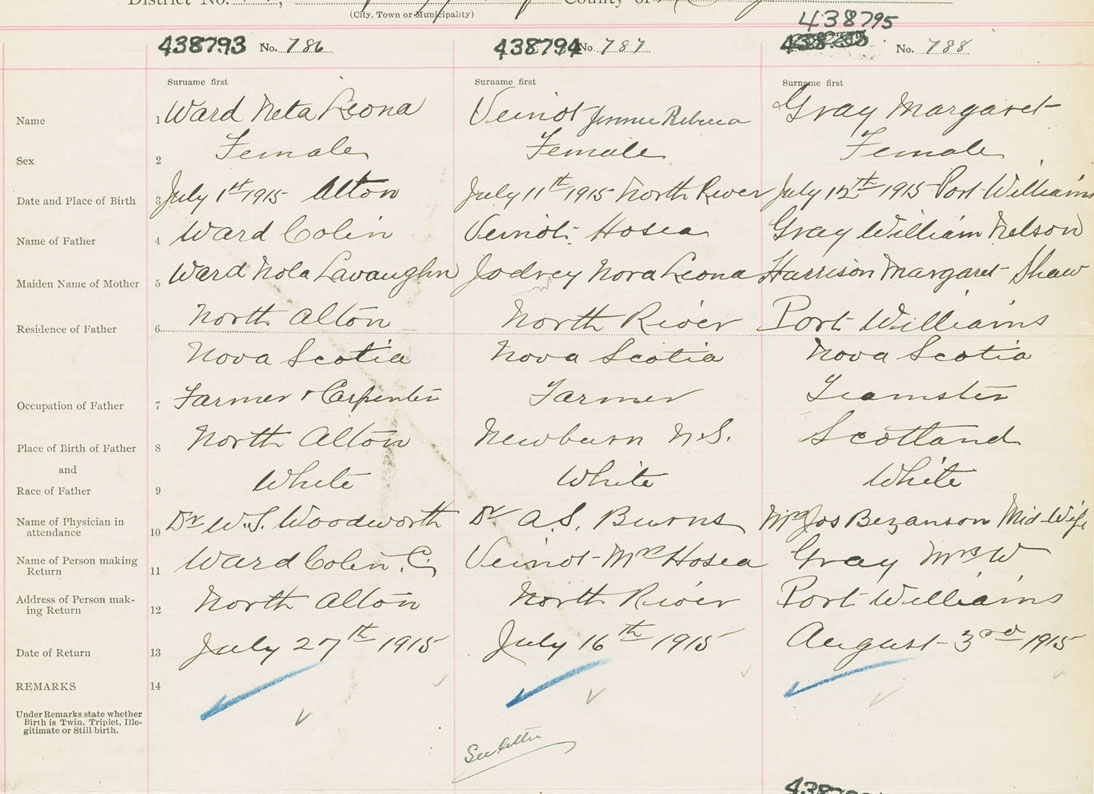 District No. County of
(City, Town or Municipality)
438795
438793 No. 786 438794 No. 787 No. 788
Surname first Surname first Surname first
Name 1 Ward Neta Leona Veinot Jennie Rebecca Gray Margaret
Sex 2 Female Female Female
Date and Place of Birth 3 July 1st 1915 Alton July 11th 1915 North River July 12th 1915 Port Williams
Name of Father 4 Ward Colin Veinot Hosea Gray William Nelson
Maiden Name of Mother 5 Ward Nola Lavaughn Jodrey Nora Leona Harrison Margaret Shaw
Residence of Father 6 North Alton North River Port Williams
Nova Scotia Nova Scotia Nova Scotia
Occupation of Father 7 Farmer & Carpenter Farmer Teamster
Place of Birth of Father 8 North Alton Newburn N.S. Scotland
and
Race of Father 9 White White White
Name of Physician in attendance 10 Dr W.S. Woodworth Dr A.S. Burns Mrs Jos Bezanson Mid-Wife
Name of Person making Return 11 Ward Colin C. Veinot Mrs Hosea Gray Mrs W
Address of Person making Return 12 North Alton North River Port Williams
Date of Return 13 July 27th 1915 July 16th 1915 August 3rd 1915
REMARKS 14
Under Remarks state whether
Birth is Twin, Triplet, Ille-
gitimate or Still birth.
See letter